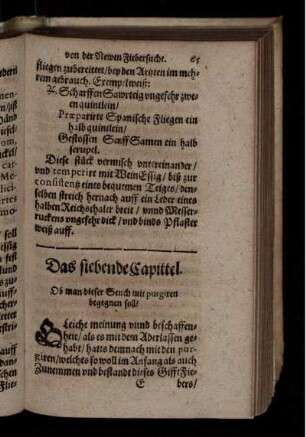 von der Newen Fiebersucht. 65
fliegen zubereittet / bey den Artzten im meh-
rern gebrauch. Exempelweiß:
℞. Scharffen Sawrteig vngefehr zwe-
en quintlein /
Præparirte Spanische Fliegen ein
halb quintlein /
Gestossen Senff Samen ein halb
scrupel.
Diese stück vermisch vntereinander /
vnd temperire mit Wein Essig / biß zur
consistenß eines bequemen Teigs / den-
selben streich hernach auff ein Leder eines
halben Reichsthaler breit / vnnd Messer-
ruckens vngefehr dick / vnd binds Pflaster
weiß auff.
Das siebende Capittel.
Ob man dieser Seuch mit purgiren
begegnen soll /
Gleiche meinung vnnd beschaffen-
heit / als es mit dem Aderlassen ge-
habt / hatts demnach mit den pur-
giren / welchs so woll im Anfang als auch
Zunemmen vnd bestandt dieses Gifft Fie-
E bers /